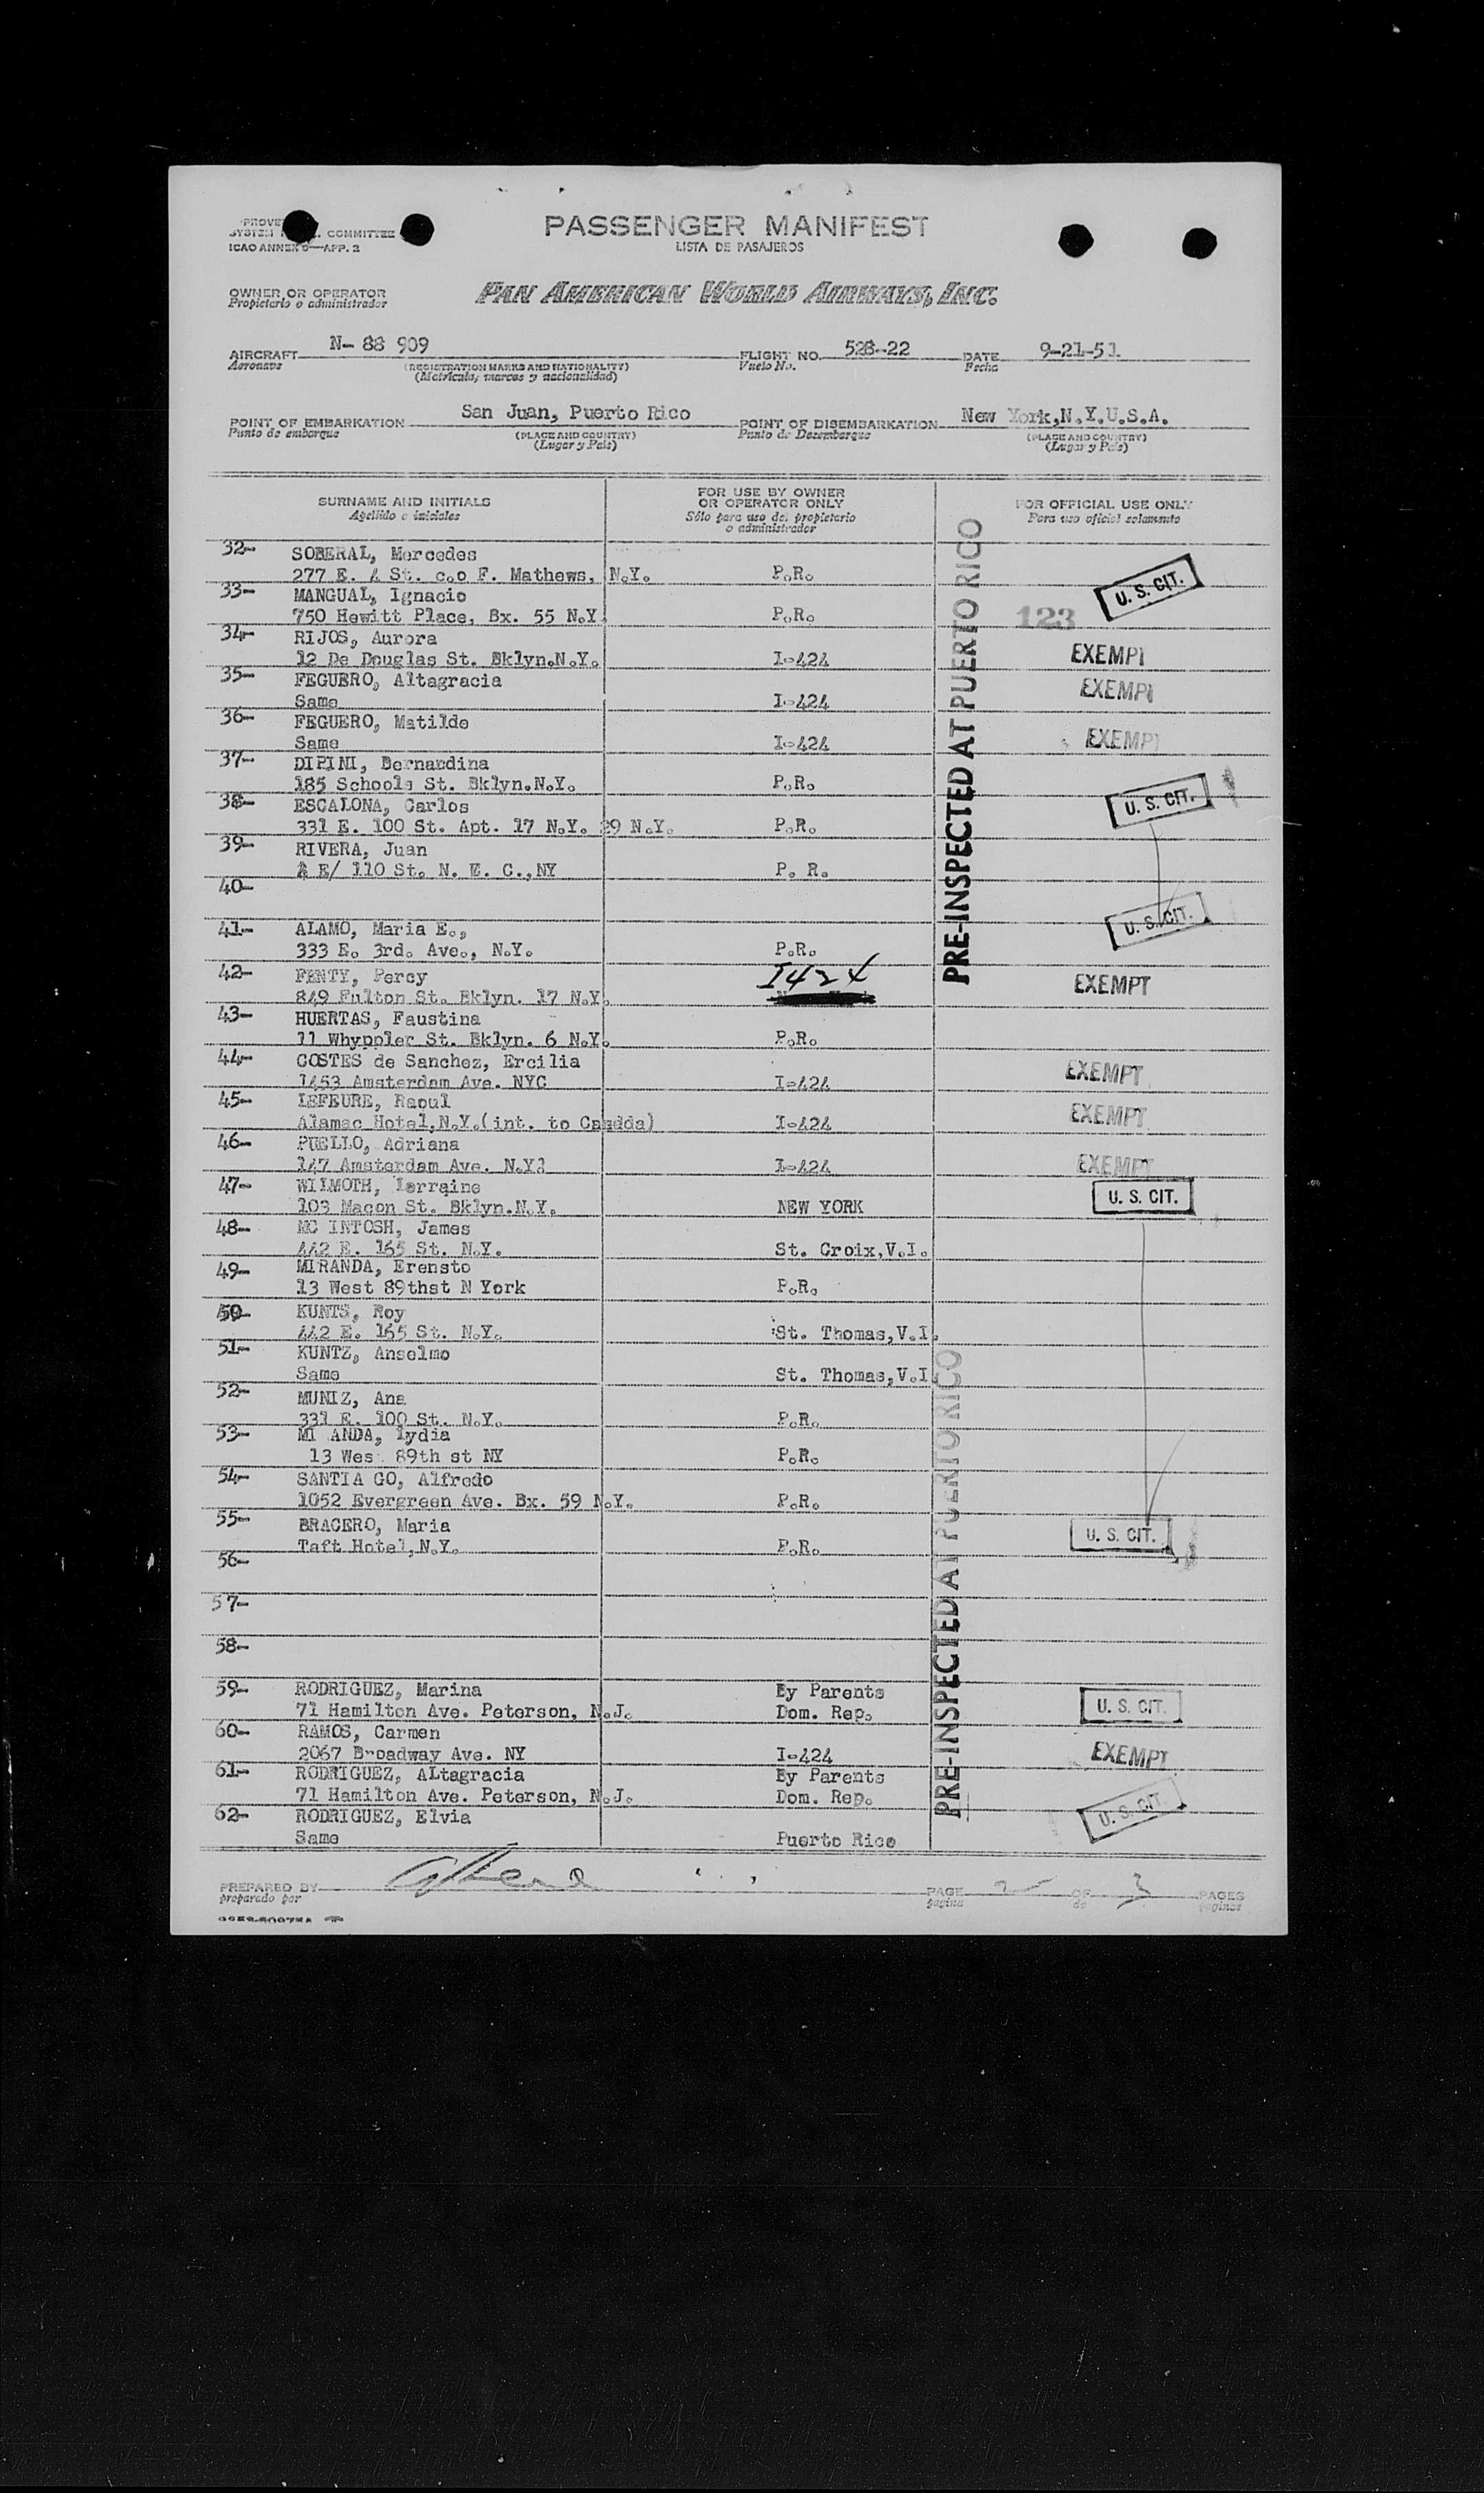 PASSENGER MANIFEST
LISTA DE PASAJEROS
COMMITTEE
ICAO ANNEX 9—APP. 2
OWNER OR OPERATOR
Propietario o administrador
PAN AMERICAN WORLD AIRWAYS, INC.
AIRCRAFT N- 88 909 FLIGHT NO. 528-22 DATE 9-21-51
Aeronave (REGISTRATION MARKS AND NATIONALITY) Vuelo No. Fecha
(Matricula, marcas y nacionalidad)
POINT OF EMBARKATION San Juan, Puerto Rico POINT OF DISEMBARKATION New York,N.Y.U.S.A.
Punto de embarque (PLACE AND COUNTRY) Punto de Desembarque (PLACE AND COUNTRY)
(Lugar y País) (Lugar y País)
SURNAME AND INITIALS FOR USE BY OWNER OR OPERATOR ONLY FOR OFFICIAL USE ONLY
Apellido e iniciales Sólo para uso del propietario o administrador Para uso oficial solamente
PRE-INSPECTED AT PUERTO RICO
32- SOBERAL, Mercedes
277 E. 4 St. c.o F. Mathews, N.Y. P.R. U. S. CIT.
33- MANGUAL, Ignacio
750 Hewitt Place, Bx. 55 N.Y. P.R. 123
34- RIJOS, Aurora
12 De Douglas St. Bklyn.N.Y. I-424 EXEMPT
35- FEGUERO, Altagracia
Same I-424 EXEMPT
36- FEGUERO, Matilde
Same I-424 EXEMPT
37- DIPINI, Bernardina
185 Schools St. Bklyn.N.Y. P.R.
38- ESCALONA, Carlos U. S. CIT.
331 E. 100 St. Apt. 17 N.Y. 29 N.Y. P.R.
39- RIVERA, Juan
E/ 110 St. N. E. C.,NY P. R.
40-
41- ALAMO, Maria E., U. S. CIT.
333 E. 3rd. Ave., N.Y. P.R.
42- FENTY, Percy I424 EXEMPT
849 Fulton St. Bklyn. 17 N.Y.
43- HUERTAS, Faustina
11 Whyppler St. Bklyn. 6 N.Y. P.R.
44- COSTES de Sanchez, Ercilia
1453 Amsterdam Ave. NYC I-424 EXEMPT
45- LEFEURE, Raoul
Alamac Hotel,N.Y.(int. to Candda) I-424 EXEMPT
46- PUELLO, Adriana
147 Amsterdam Ave. N.Y1 I-424 EXEMPT
47- WILMOTH, Lorraine U. S. CIT.
103 Macon St. Bklyn.N.Y. NEW YORK
48- MC INTOSH, James
442 E. 165 St. N.Y. St. Croix,V.I.
49- MIRANDA, Erensto
13 West 89thst N York P.R.
50- KUNTS, Roy
442 E. 165 St. N.Y. St. Thomas,V.I.
51- KUNTZ, Anselmo
Same St. Thomas,V.I.
PRE-INSPECTED AT PUERTO RICO
52- MUNIZ, Ana
331 E. 100 St. N.Y. P.R.
53- MI ANDA, lydia
13 West 89th st NY P.R.
54- SANTIA GO, Alfredo
1052 Evergreen Ave. Bx. 59 N.Y. P.R.
55- BRACERO, Maria U. S. CIT.
Taft Hotel,N.Y. P.R.
56-
57-
58-
59- RODRIGUEZ, Marina By Parents U. S. CIT.
71 Hamilton Ave. Peterson, N.J. Dom. Rep.
60- RAMOS, Carmen
2067 Broadway Ave. NY I-424 EXEMPT
61- RODRIGUEZ, ALtagracia By Parents
71 Hamilton Ave. Peterson, N.J. Dom. Rep.
62- RODRIGUEZ, Elvia U. S. CIT.
Same Puerto Rico
PREPARED BY PAGE 2 OF 3 PAGES
preparado por pagina de paginas